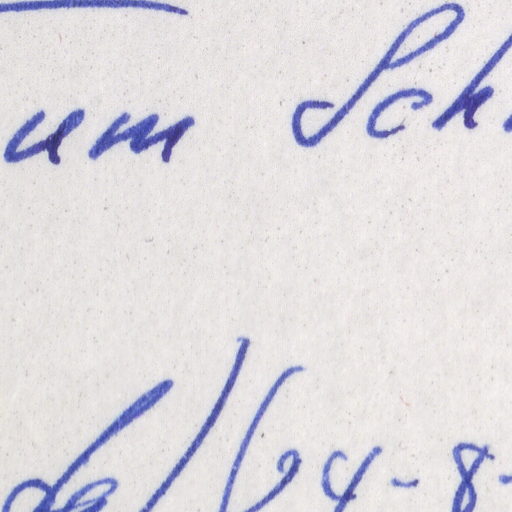 um Sch
de) (24-8-